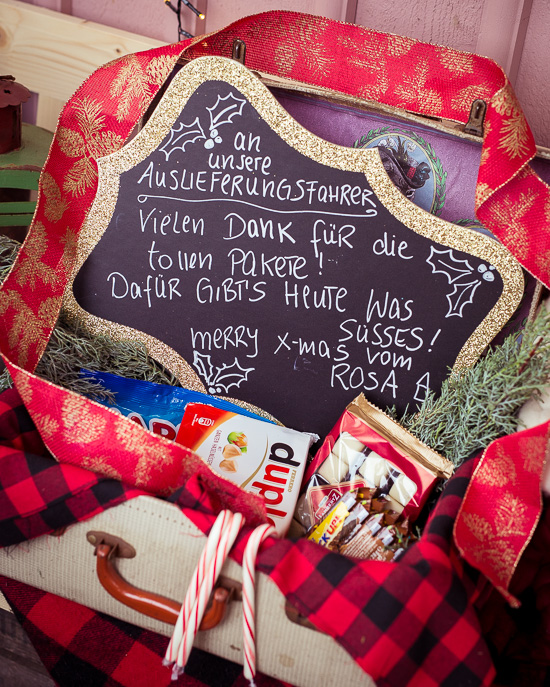 an
unsere
AUSLIEFERUNGSFAHRER
Vielen DANK für die
tollen PAKETE!
Dafür GIBT'S HEUTE WAS
SÜSSES!
merry x-mas vom
ROSA
duplo